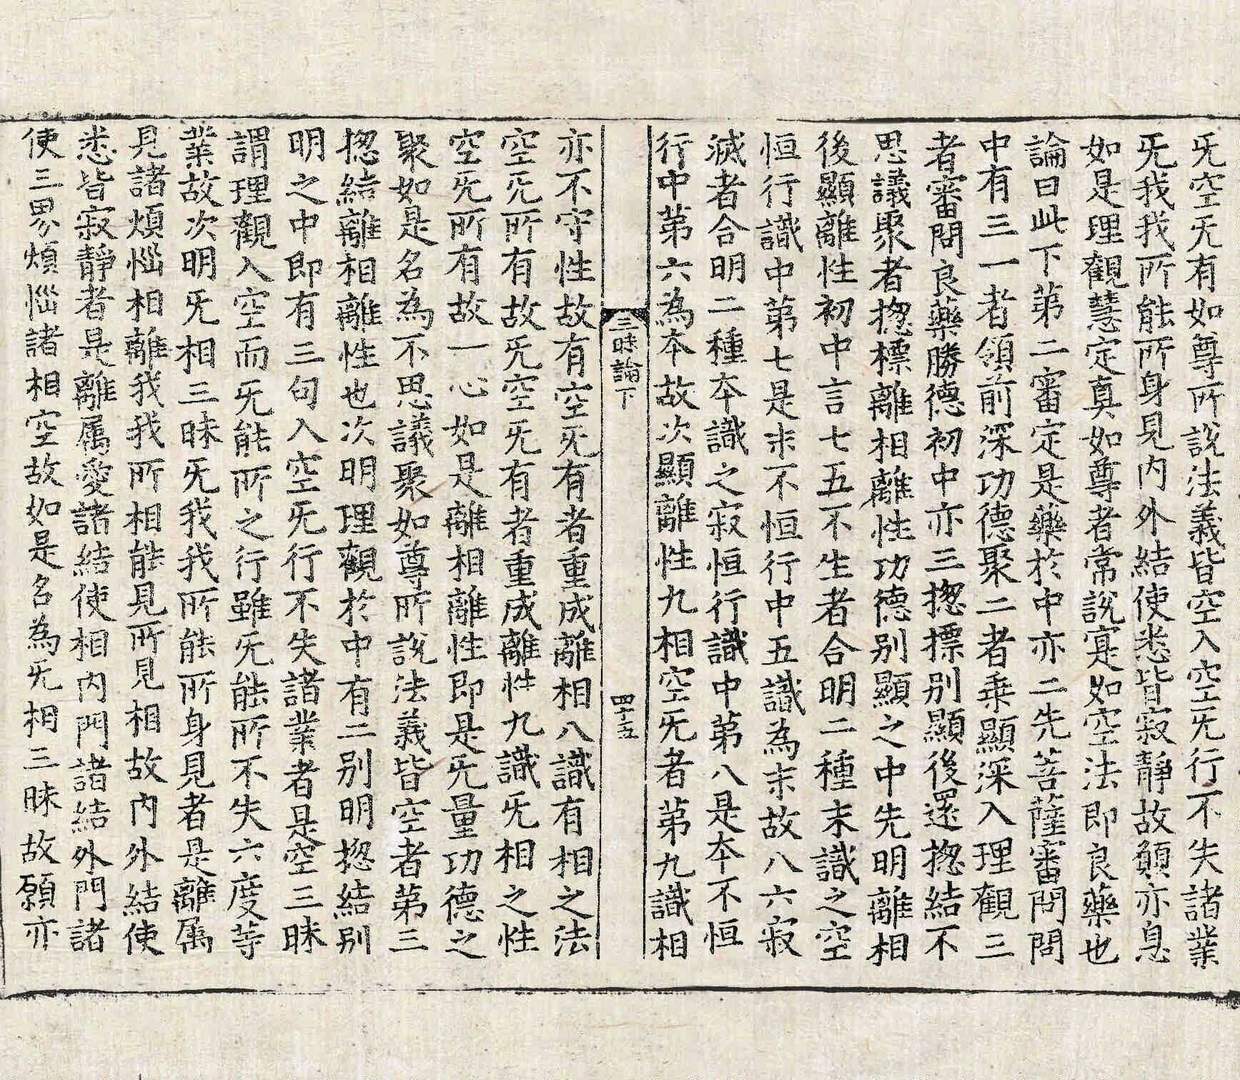 旡空旡有如尊所說法義皆空入空旡行不失諸業
旡我我所能所身見內外結使悉皆寂靜故願亦息
如是理觀慧定真如尊者常說寔如空法即良藥也
論曰此下第二審定是藥於中亦二先菩薩審問問
中有三一者領前深功德聚二者乘顯深入理觀三
者審問良藥勝德初中亦三揔摽別顯後還揔結不
思議聚者揔標離相離性功德別顯之中先明離相
後顯離性初中言七五不生者合明二種末識之空
恒行識中第七是末不恒行中五識為末故八六寂
滅者合明二種本識之寂恒行識中第八是本不恒
行中第六為本故次顯離性九相空旡者第九識相
三昧論下
四十五
亦不守性故有空旡有者重成離相八識有相之法
空旡所有故旡空旡有者重成離性九識旡相之性
空旡所有故一心如是離相離性即是旡量功德之
聚如是名為不思議聚如尊所說法義皆空者第三
揔結離相離性也次明理觀於中有二別明揔結別
明之中即有三句入空旡行不失諸業者是空三昧
謂理觀入空而旡能所之行雖旡能所不失六度等
業故次明旡相三昧旡我我所能所身見者是離属
見諸煩惱相離我我所相能見所見相故內外結使
悉皆寂靜者是離属愛諸結使相內門諸結外門諸
使三界煩惱諸相空故如是名為旡相三昧故願亦